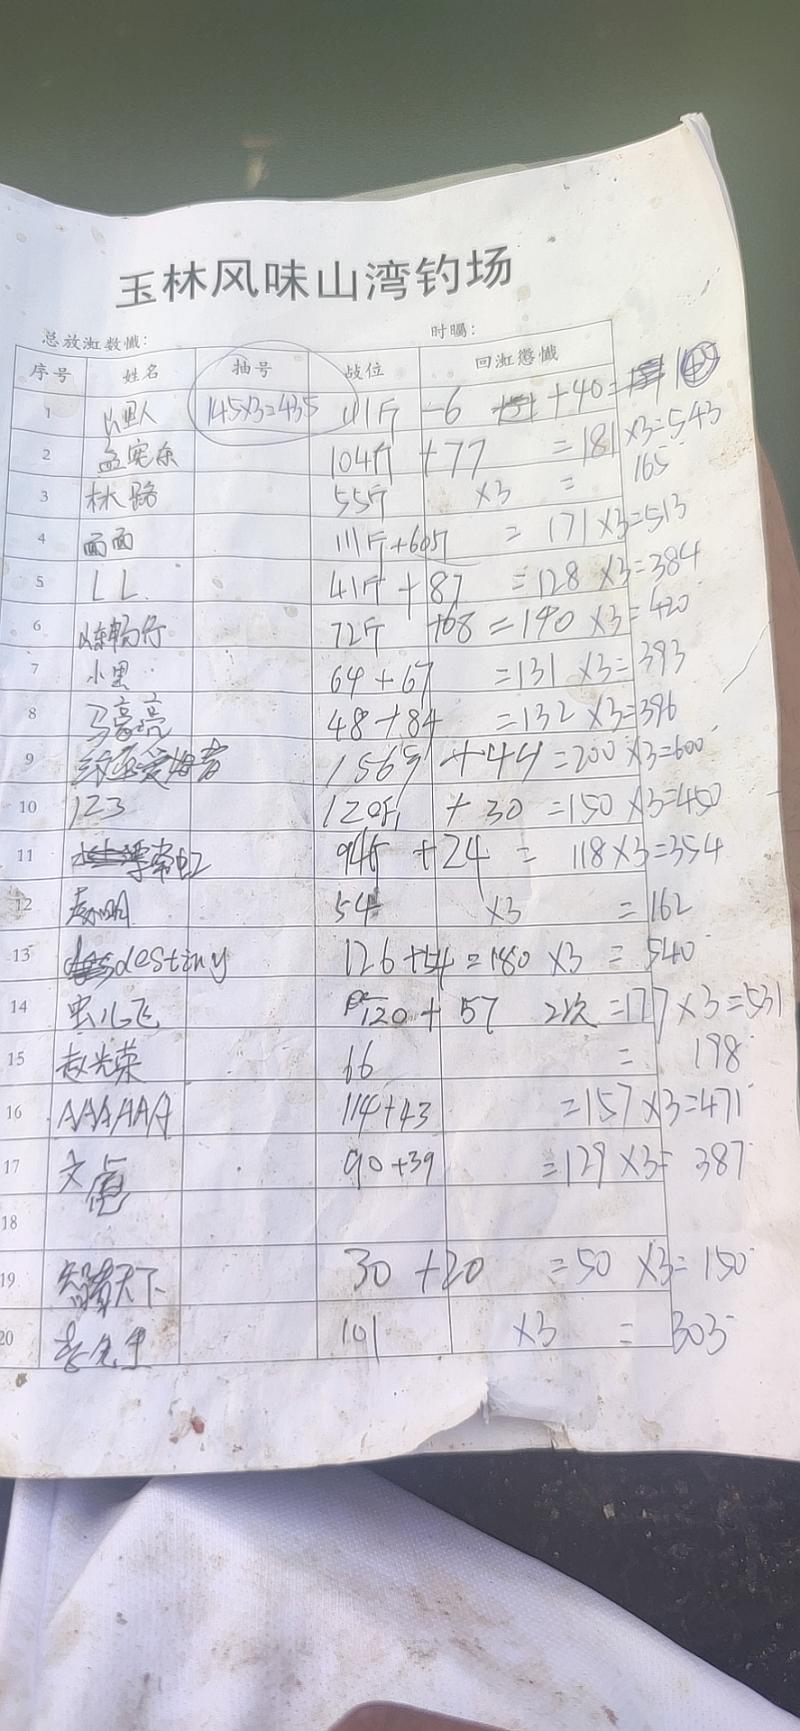 玉林风味山湾钓场
总放 数 : 时 :
序号 姓名 抽号 战位 回
1 145×3=435 111斤 -6 +40= 1
2 孟宪东 104斤 +77 =181×3=543
3 林路 55斤 ×3 = 165
4 面面 111斤+60斤 = 171×3=513
5 LL. 41斤 +87 =128×3=384
6 陈畅行 72斤 +68 =140×3=420
7 小黑 64+67 =131×3=393
8 马豪亮 48+84 =132×3=396
9 156斤 +44=200×3=600
10 123 120斤 +30 =150×3=450
11 94斤 +24 = 118×3=354
12 54 ×3 =162
13 destiny 126+54=180 ×3 = 540
14 虫儿飞 120+57 2次 =177×3=531
15 赵光荣 66 = 198
16 AAAAAA 114+43 =157×3=471
17 文 90+39 =129×3= 387
18
19 天下 30 +20 =50 ×3=150
20 李先生 101 ×3 = 303